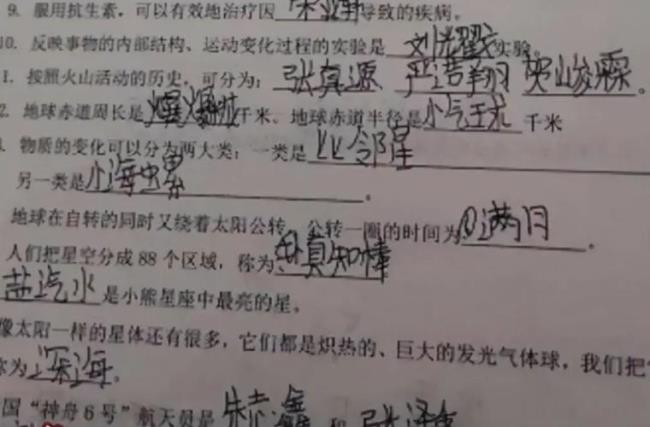 9. 服用抗生素，可以有效地治疗因导致的疾病。
10. 反映事物的内部结构、运动变化过程的实验是 刘光耀 实验。
1. 按照火山活动的历史，可分为：张真源 严浩翔 贺峻霖。
2. 地球赤道周长是 爆爆 千米、地球赤道半径是 小气球 千米
物质的变化可以分为两大类：一类是 比邻星
另一类是 小海螺。
地球在自转的同时又绕着太阳公转，公转一圈的时间为 满月。
人们把星空分成88个区域，称为 真知棒
盐汽水 是小熊星座中最亮的星。
像太阳一样的星体还有很多，它们都是炽热的、巨大的发光气体球，我们把
称为 深海。
国“神舟6号”航天员是 朱志鑫 和